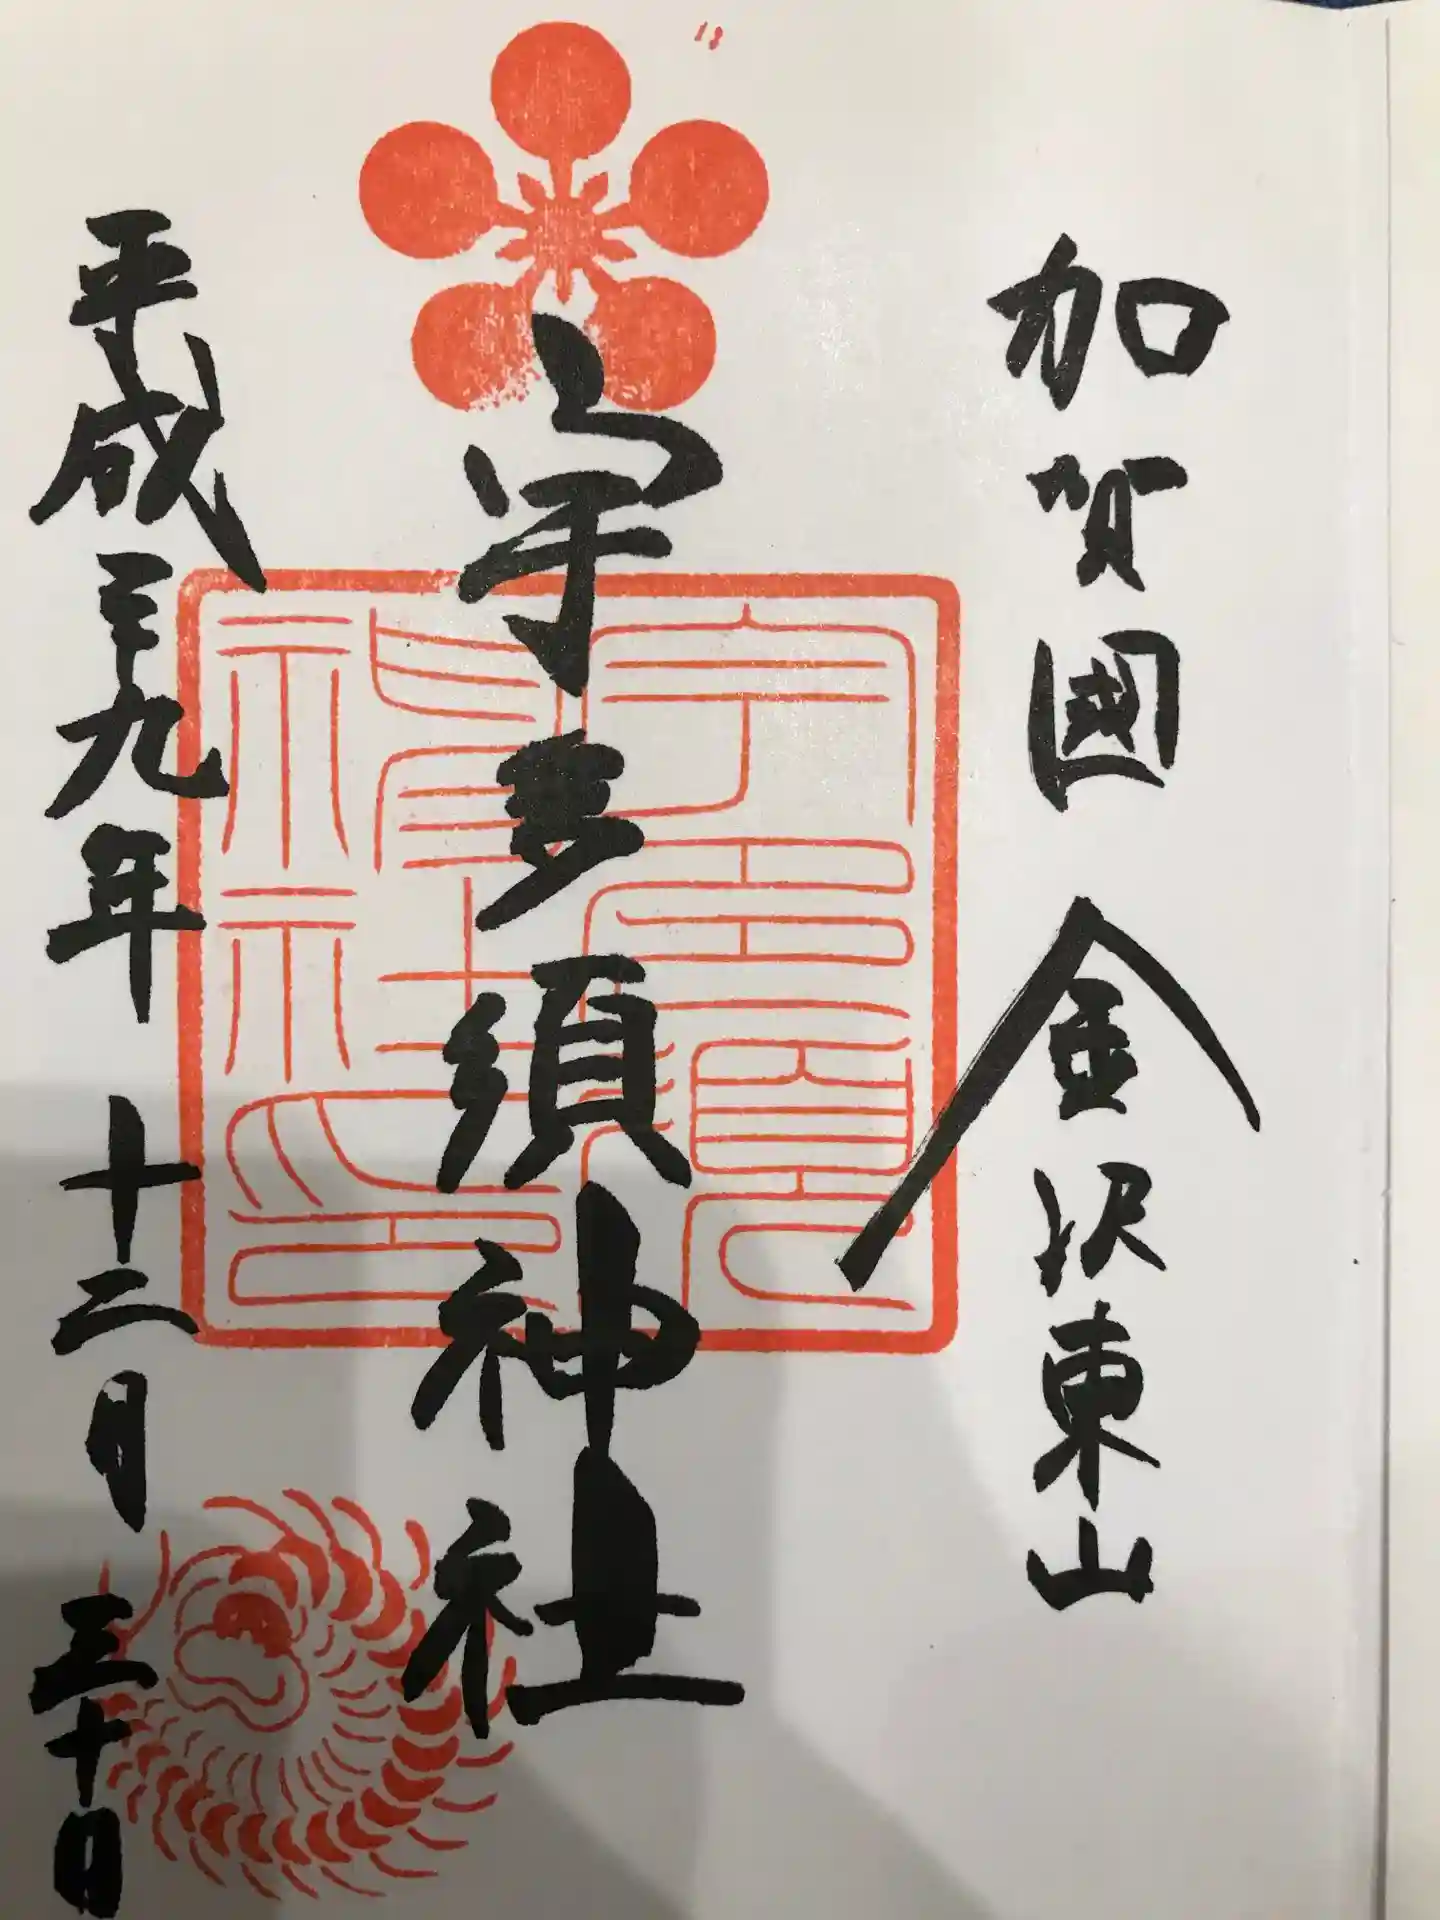 加賀國 金沢東山
宇多須神社
宇多須神社印
平成二十九年 十二月 三十日